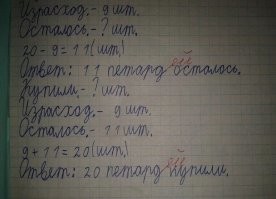 Израсход.- 9 шт.
Осталось.- ? шт.
20 - 9 = 11 (шт.)
Ответ: 11 петард осталось.
Купили.- ? шт.
Израсход.- 9 шт.
Осталось.- 11 шт.
9 + 11 = 20 (шт.)
Ответ: 20 петард купили.